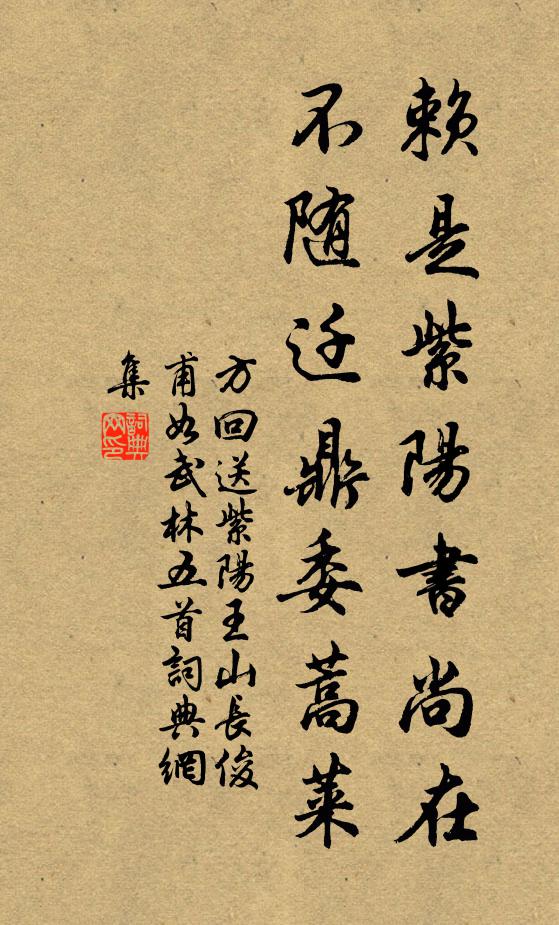 賴是紫陽書尚在
不随迁鼎委蒿萊
方回送紫陽王山長俊
甫如武林五首詞典網
集
詞典
网印